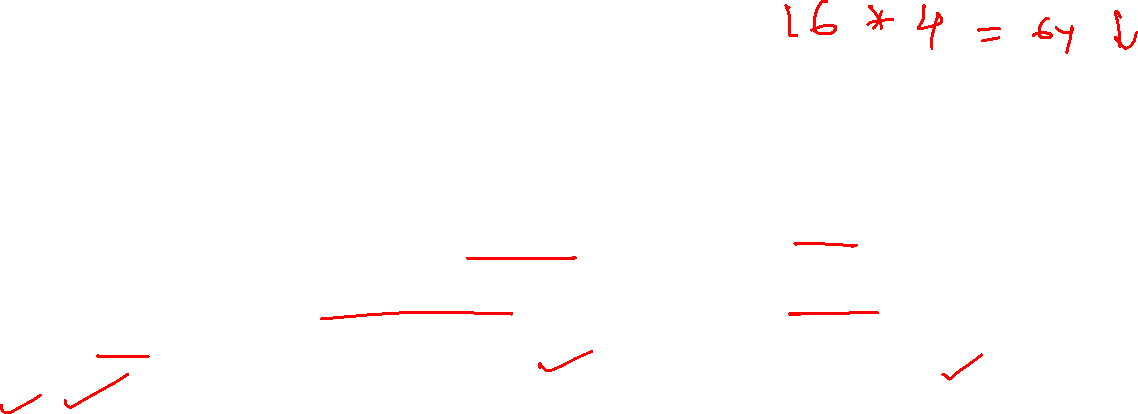 16 * 4 = 64 ↓